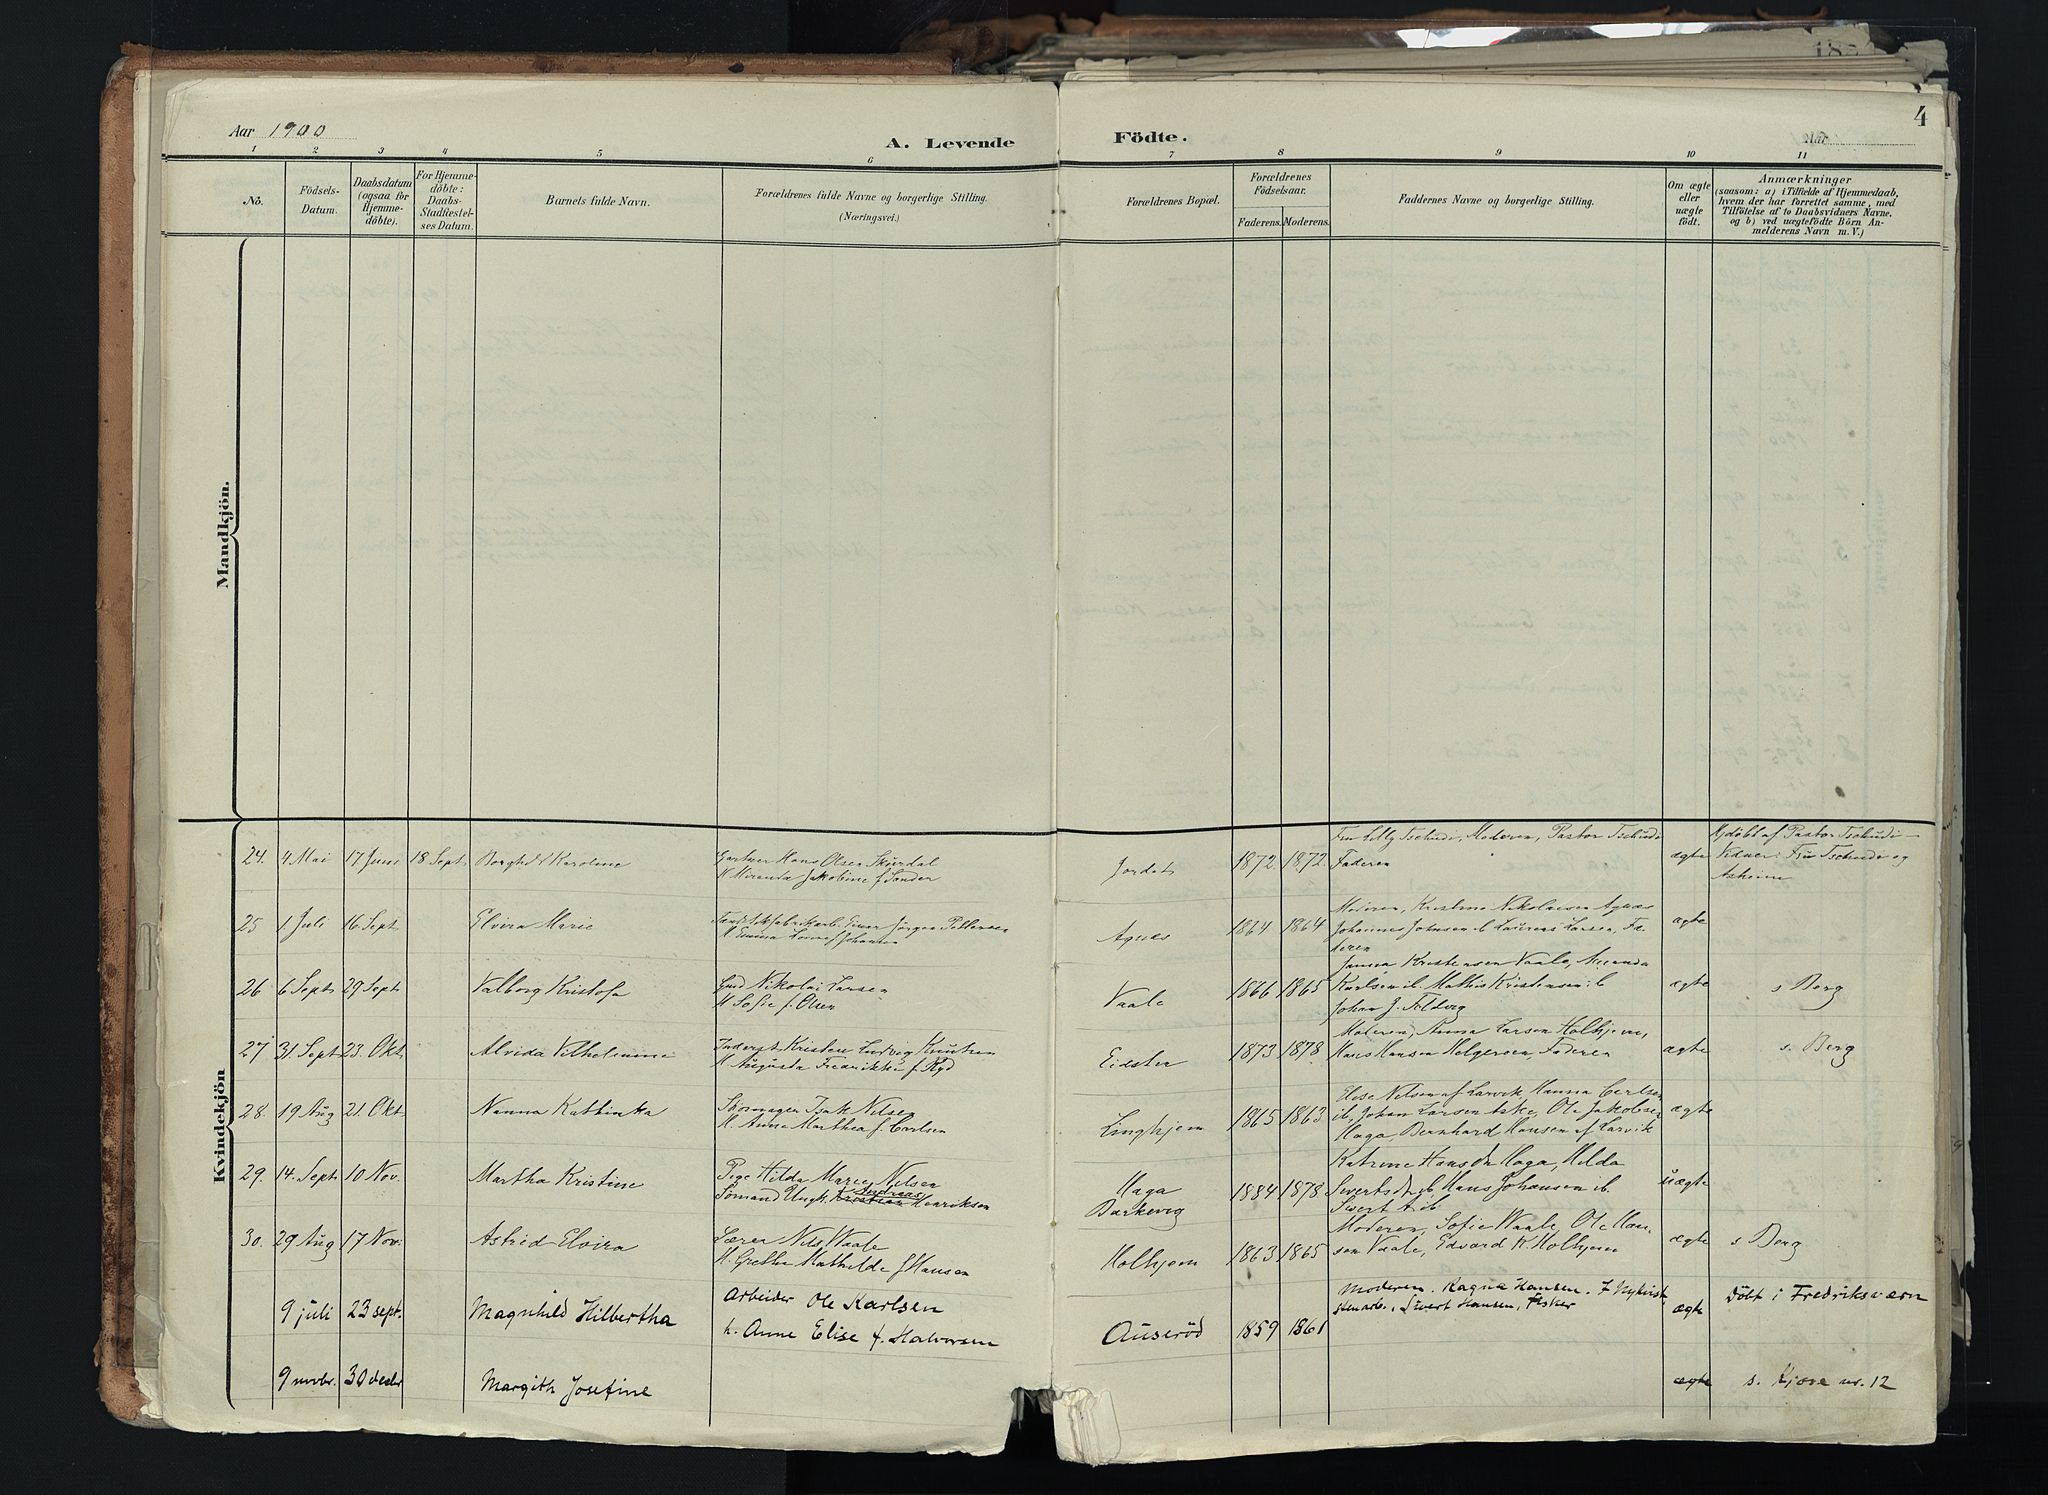 4
Aar 1900
A. Levende Födte.
Aar
1 2 3 4 5 6 7 8 9 10 11
No.
Födsels-Datum.
Daabsdatum (ogsaa for Hjemme-döbte).
For Hjemme-döbte: Daabs-Stadfæstel-ses Datum.
Barnets fulde Navn.
Forældrenes fulde Navne og borgerlige Stilling.
(Næringsvei.)
Forældrenes Bopæl.
Forældrenes Födselsaar.
Faderens. Moderens.
Faddernes Navne og borgerlige Stilling.
Om ægte eller uægte födt.
Anmærkninger
(saasom: a) i Tilfælde af Hjemmedaab,
hvem der har forrettet samme, med
Tilföielse af to Daabsvidners Navne,
og b) ved uægtefödte Börn An-
melderens Navn m. V.)
Mandkjön.
Kvindekjön
24. 4 Mai 17 Juni 18 Sept. Borghild Karoline
Gartner Hans Olsen Skurdal
H. Miranda Jakobine f. Sander
Jordet 1872. 1872.
Fru Lelly Tschudi, Moderen, Pastor Tschudi
Faderen
ægte
Hjdöbt af Pastor Tschudi
Vidner: Fru Tschudi og
25 1 Juli 16 Sept. Elvira Marie
Einar Jörgen Pettersen
H. Emma Lovise f. Johansen
Agnes 1864 1864
Moderen, Kristine Nikolaisen Agnes
Johannes Johnsen ib. Laurens Larsen, Fa-
deren
ægte
26 6 Sept. 29 Sept. Valborg Kristofa
Gmd Nikolai Larsen
H Sofie f. Olsen
Vaale 1866 1865
Kristensen Vaale, Amanda
Karlsen ib. Mathis Kristensen ib
Johan J. Feldvig
ægte
s Berg
27 31. Sept. 23. Okt. Alvida Vilhelmine
Inderst Kristen Ludvig Knutsen
H. Augusta Fredrikke f. Ryd
Eidsten 1873 1878
Moderen, Anna Larsen Holhjem,
Hans Hansen Melgersen, Faderen
ægte
s. Berg
28. 19 Aug 21. Okt. Nanna Kathinka
Isak Nilsen
H. Anne Marthea f. Carlsen
Linghjem 1865 1863
Elise Nilsen af Larvik Hanna Carlsen
ib, Johan Larsen Aske, Ole Jakobsen
Haga, Bernhard Hansen af Larvik
ægte
29. 14. Sept. 10 Nov. Martha Kristine
Pige Hilda Marie Nilsen
Andreas
Sömand Ungk. Kristian Henriksen
Haga
Barkevig
1884 1878
Katrine Hansdr Haga, Hilda
Sivertsdtr ib. Hans Johansen ib.
uægte
30. 29 Aug 17 Nov. Astrid Elvira
Lærer Nils Vaale
H. Grethe Mathilde f Hansen
Holhjem 1863 1865
Moderen, Sofie Vaale, Ole Han-
sen Vaale, Edvard K. Holhjem
ægte
s Berg
9 juli 23 sept. Magnhild Hilbertha
Arbeider Ole Karlsen
h. Anne Elise f. Halvorsen
Auseröd 1859 1861
Moderen. Ragna Hansen. F Nykvist,
stenarb., Sivert Hansen, Fisker
ægte
Döbt i Fredriksværn
9 novbr. 30 decbr Margith Josefine
ægte
s. Kjose nr. 12